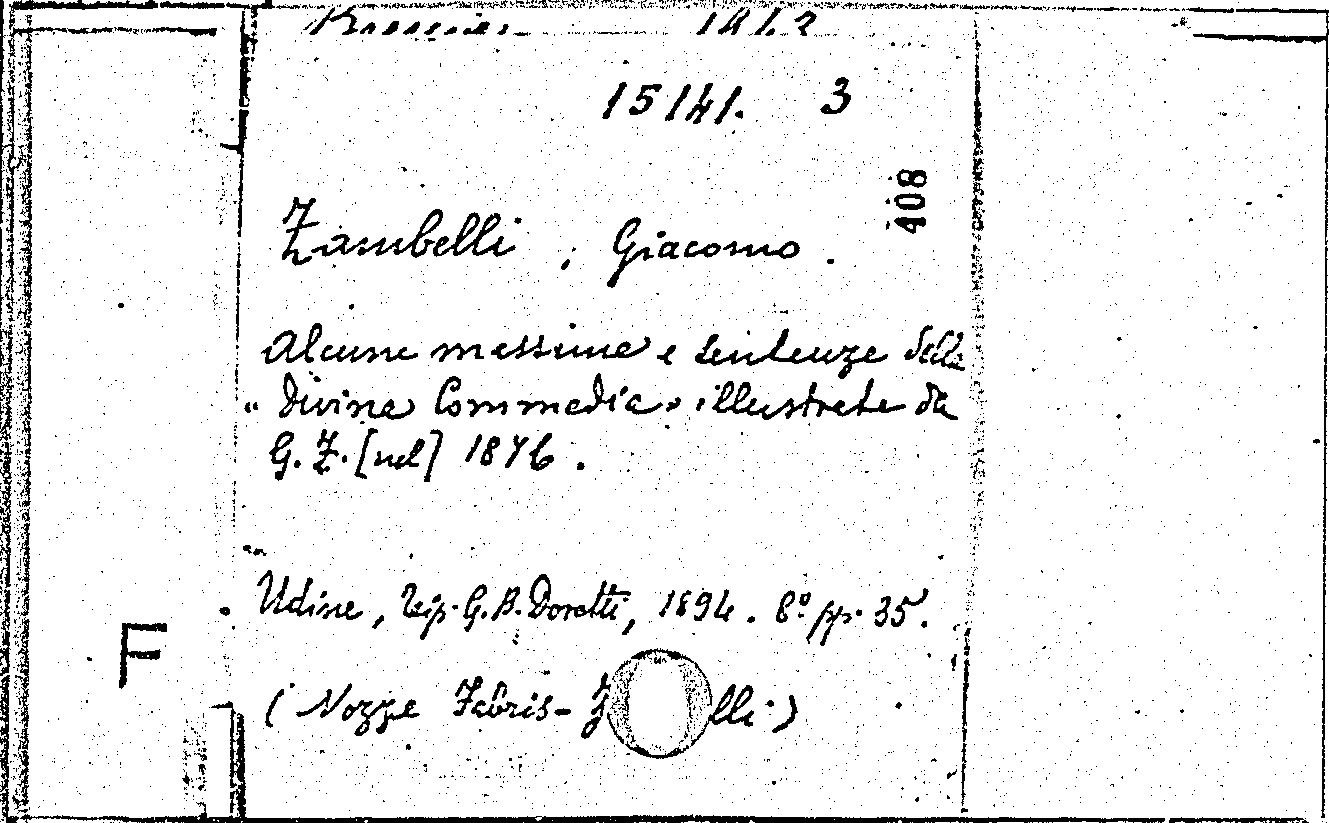 15141. 3
408
Zambelli, Giacomo.
Alcune massime e sentenze della
"Divina Commedia" illustrate da
G. Z. [nel] 1876.
Udine, Tip. G. B. Doretti, 1894. 8º pp. 35.
F
(Nozze Fabris-Z lli)